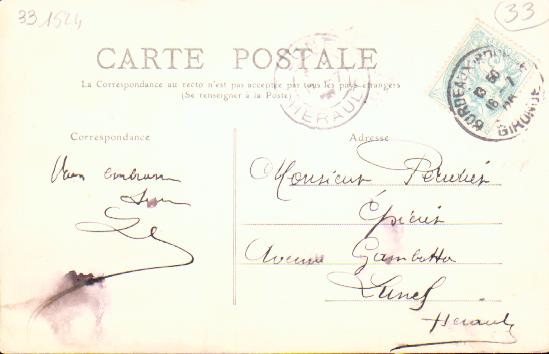 33.1524
33
CARTE POSTALE
La Correspondance au recto n'est pas acceptée par tous les pays étrangers
(Se renseigner à la Poste)
HERAULT
BORDEAUX
GIRONDE
Correspondance
Adresse
Vous embrasse
Monsieur
Épicier
Avenue Gambetta
Lunel
Hérault